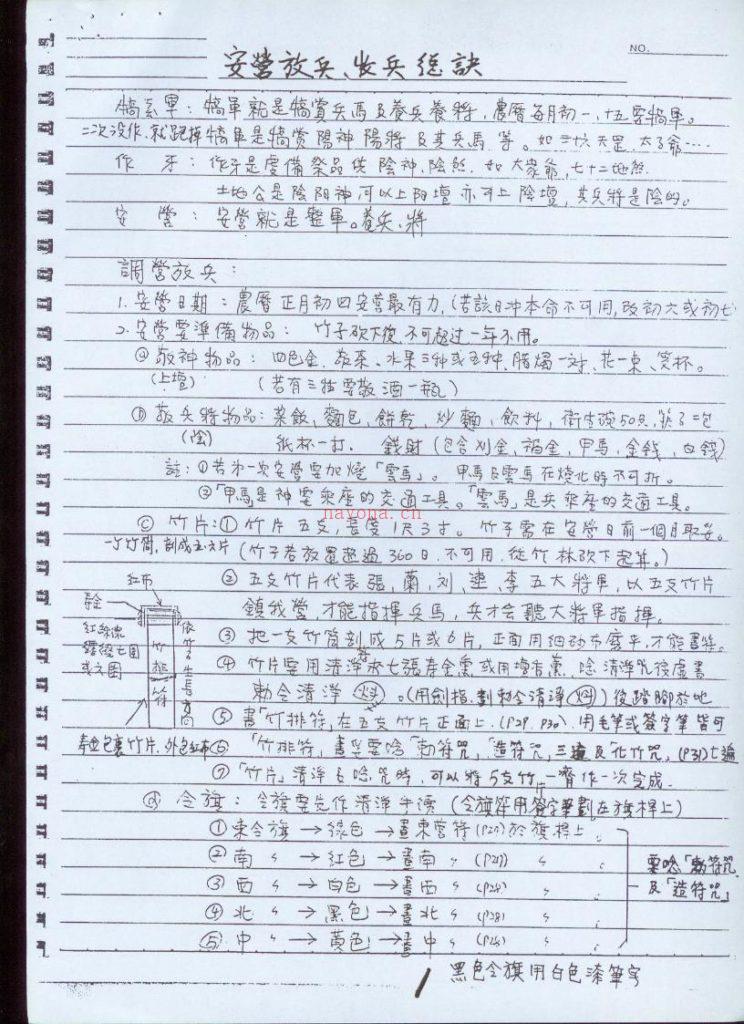 NO.
安營放兵、收兵總訣
犒軍：犒軍就是犒賞兵馬及養兵養將，農曆每月初一、十五要犒軍。
二次沒作，就跑掉犒軍是犒赏陽神陽將及其兵馬等。如三六天罡、太子爺……
作 牙：作牙是虔備祭品供陰神、陰煞。如大眾爺，七十二地煞.
土地公是陰阳神可以上阳壇亦可上陰壇，其兵將是陰的。
安 營：安營就是整軍。養兵、將
調營放兵：
1. 安營日期：農曆正月初四安營最有力，(若該日冲本命不可用，改初六或初七
2. 安營要準備物品：竹子砍下後，不可超过一年不用。
ⓐ 敬神物品：四色金、發菜、水果三种或五种、腊燭一对、花一束、筊杯。
(上壇) (若有三牲要敬酒一瓶)
ⓑ 敬兵將物品：菜飯，麵包，餅乾，炒麵，飲料，衛生碗50只，筷子二包
(陰) 紙杯一打. 錢財(包含刈金，福金，甲馬，金錢，白錢)
註：①若第一次安營要加燒「雲馬」。甲馬及雲馬在燒化時不可折。
②「甲馬是神要乘座的交通工具。「雲馬」是兵乘座的交通工具。
nayona.cn
ⓒ 竹片：① 竹片五支，長度1尺3寸。竹子需在安營日前一個月取妥。
一个竹筒，剖成五六片 (竹子若放置超過360日，不可用，從竹林砍下起算。)
② 五支竹片代表張，蕭，刘，連，李五大將軍，以五支竹片
鎮我營，才能指揮兵馬，兵才会聽大將軍指揮。
③ 把一支竹筒剖成5片或6片，正面用细砂布磨平，才能畫符。
④ 竹片要用清淨水七張寿金薰或用檀香薰，唸清淨咒後虛書
勅令清淨 。(用劍指，劃勅令清淨)後踏腳於地
⑤ 畫「竹排符，在五支竹片正面上.(P29. P30). 用毛筆或簽字筆皆可
⑥ 「竹排符」畫妥要唸「勅符咒」，「造符咒」三遍及「化竹咒」(P31)七遍
⑦「竹片」清淨及唸咒時，可以將5支竹片一齊作一次完成.
紅布
寿金
紅綫繞
竹排符
依竹子生長方向
寿金包裹竹片，外包红布
ⓓ 令旗：令旗要先作清淨手續(令旗符用簽字筆劃在旗桿上)
①東令旗 → 綠色 → 畫東營符(P27)於旗桿上
②南 〃 → 红色 → 畫南 〃 (P27) 〃
③西 〃 → 白色 → 畫西 〃 (P28) 〃
④北 〃 → 黑色 → 畫北 〃 (P28) 〃
⑤中 〃 → 黃色 → 畫中 〃 (P28) 〃
要唸「勅符咒
及「造符咒」
黑色令旗用白色漆筆写
1